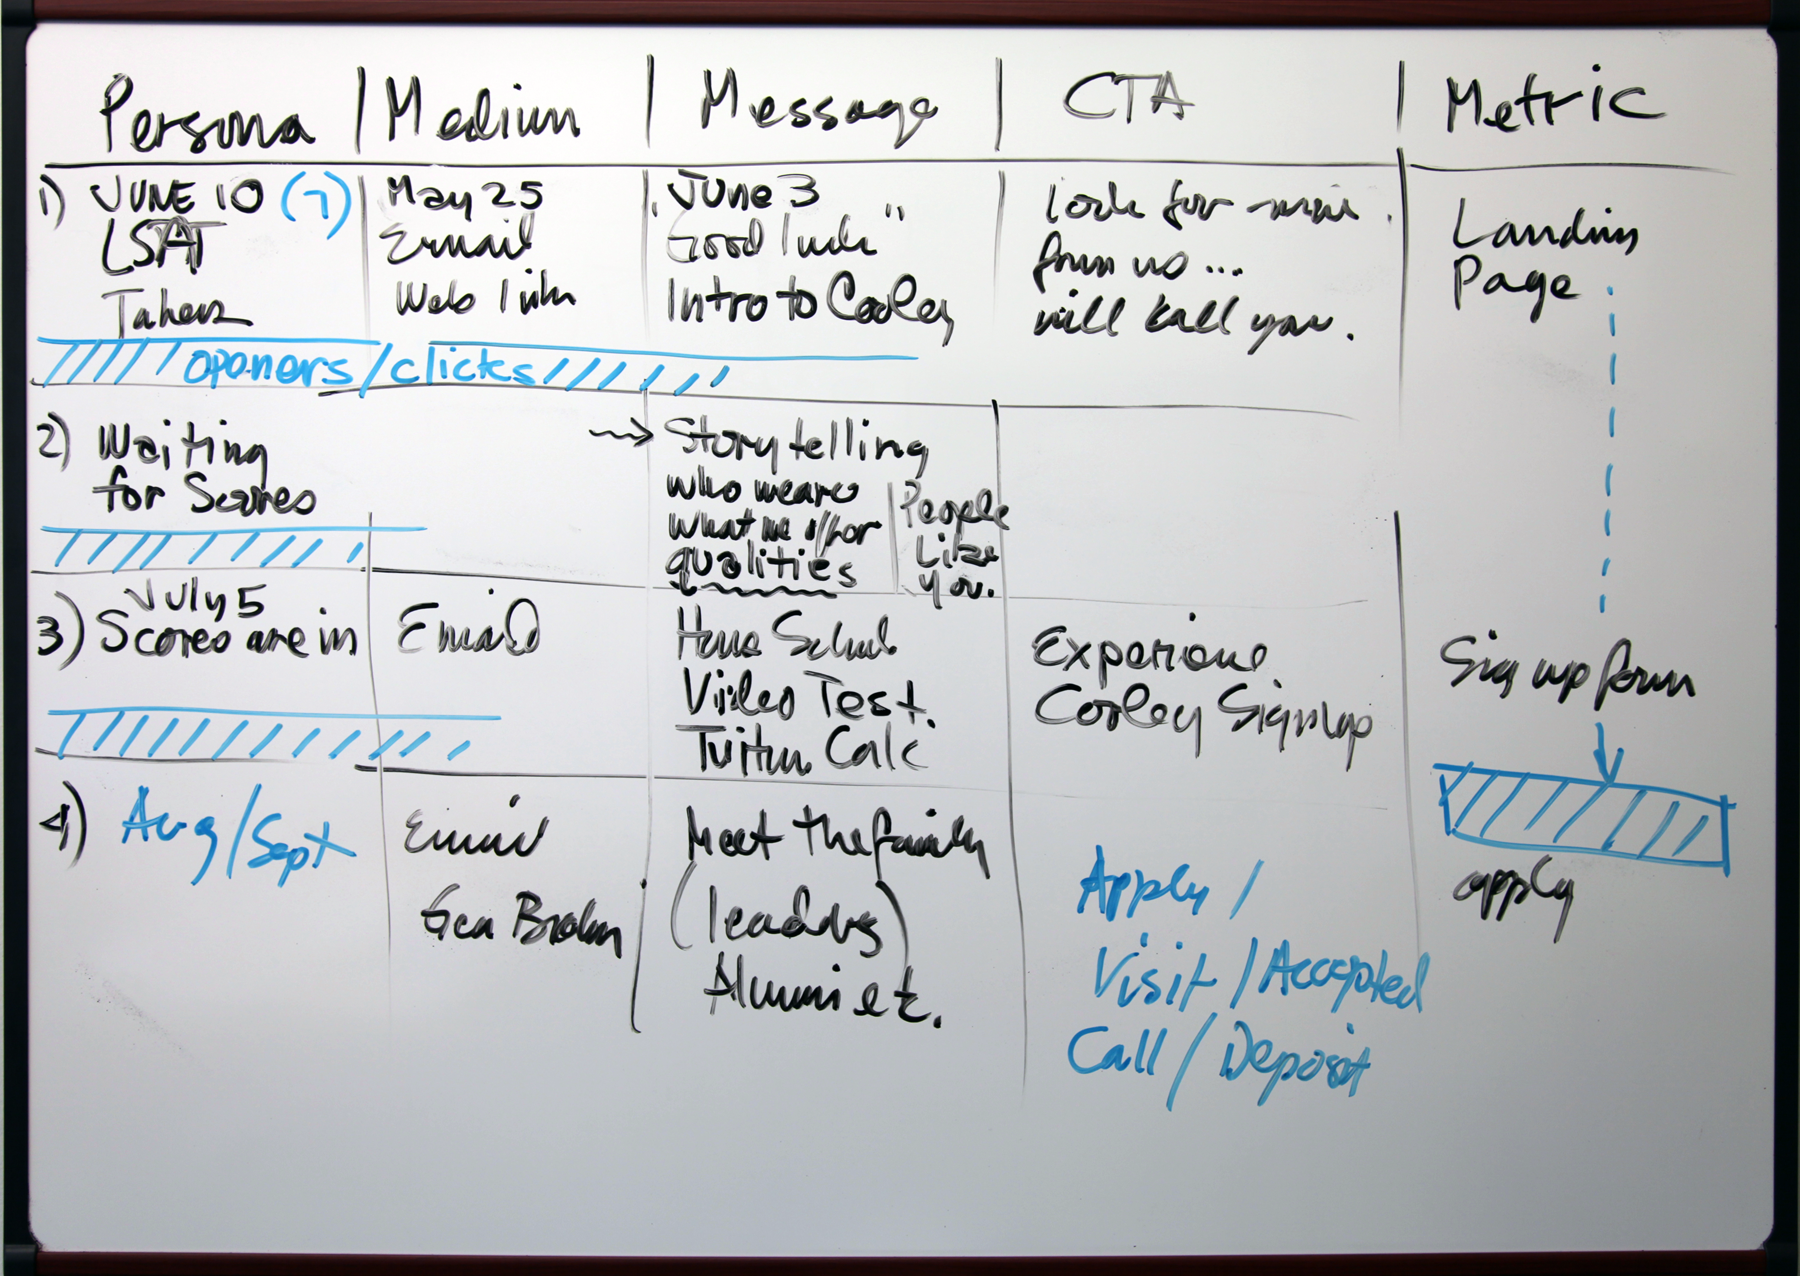 Persona | Medium | Message | CTA | Metric
1) JUNE 10 (7)
LSAT
Takers
May 25
Email
Web link
June 3
"Good luck"
Intro to Cooley
look for more
from us...
will call you.
Landing
Page
openers/clicks
2) Waiting
for Scores
Storytelling
who we are
what we offer
qualities
People
Like
you.
July 5
3) Scores are in
Email
Video Test.
Tuition Calc
Experience
Cooley Signup
Sign up form
4) Aug/Sept
Email
Meet the family
(leaders)
Alumni etc.
Apply/
Visit/Accepted
Call/Deposit
apply